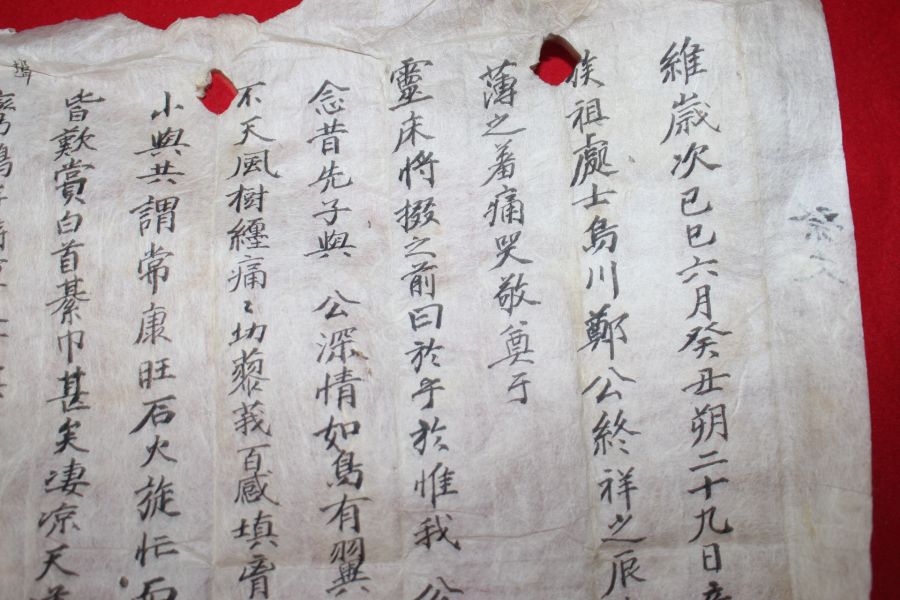 祭文
維歲次己巳六月癸丑朔二十九日
族祖處士烏川鄭公終祥之辰
薄之羞痛哭敬奠于
靈床將掇之前曰於乎於惟我 公
念昔先子與 公深情如鳥有翼
不天風樹纏痛〻切蓼莪百感塡胷
小與共謂常康旺石火旋忙而
皆歎賞白首綦巾甚矣凄凉天